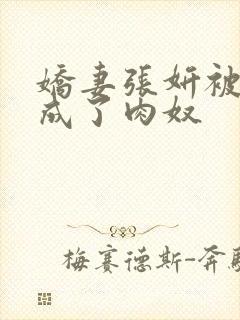 嬌妻張妍被
成了肉奴
梅賽德斯-奔馳